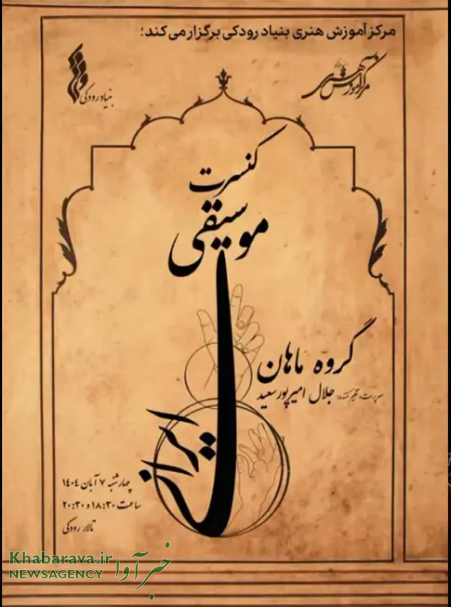 مرکز آموزش هنری بنیاد رودکی برگزار می کند؛
بنیاد رودکی
کنسرت
موسیقی
ایرانی
گروه ماهان
سرپرست و تنظیم کننده: جلال امیرپور سعید
چهارشنبه ۷ آبان ۱۴۰۴
ساعت ۱۸:۳۰ و ۲۰:۳۰
تالار رودکی
Khabarava.ir
NEWSAGENCY
خبر آوا